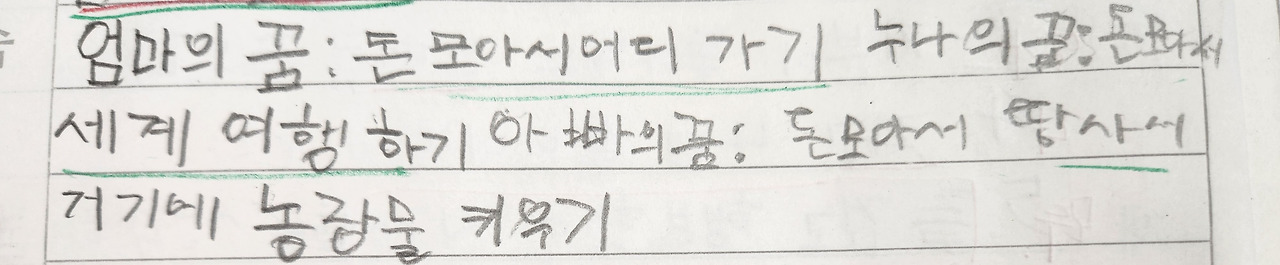 엄마의 꿈: 돈 모아서어디 가기 누나의 꿈: 돈모아서
세계 여행 하기 아빠의꿈: 돈모아서 땅사서
거기에 농랑물 키우기